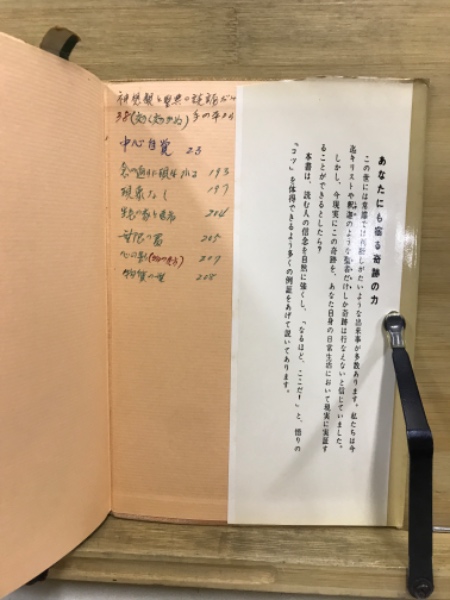 あなたにも宿る奇跡の力
この世には常識では判断しがたいような出来事が多数あります。私たちは今
迄キリストや釈迦のような聖者だけしか奇跡は行なえないと信じていました。
しかし、今現実にこの奇跡を、あなた自身の日常生活において現実に実証す
ることができるとしたら？
本書は、読む人の信念を自然に強くし、「なるほど、ここだ！」と、悟りの
「コツ」を体得できるよう多くの例証をあげて説いてあります。
38
中心自覚 23
193
現象なし 197
204
205
心の影 207
物質の 208